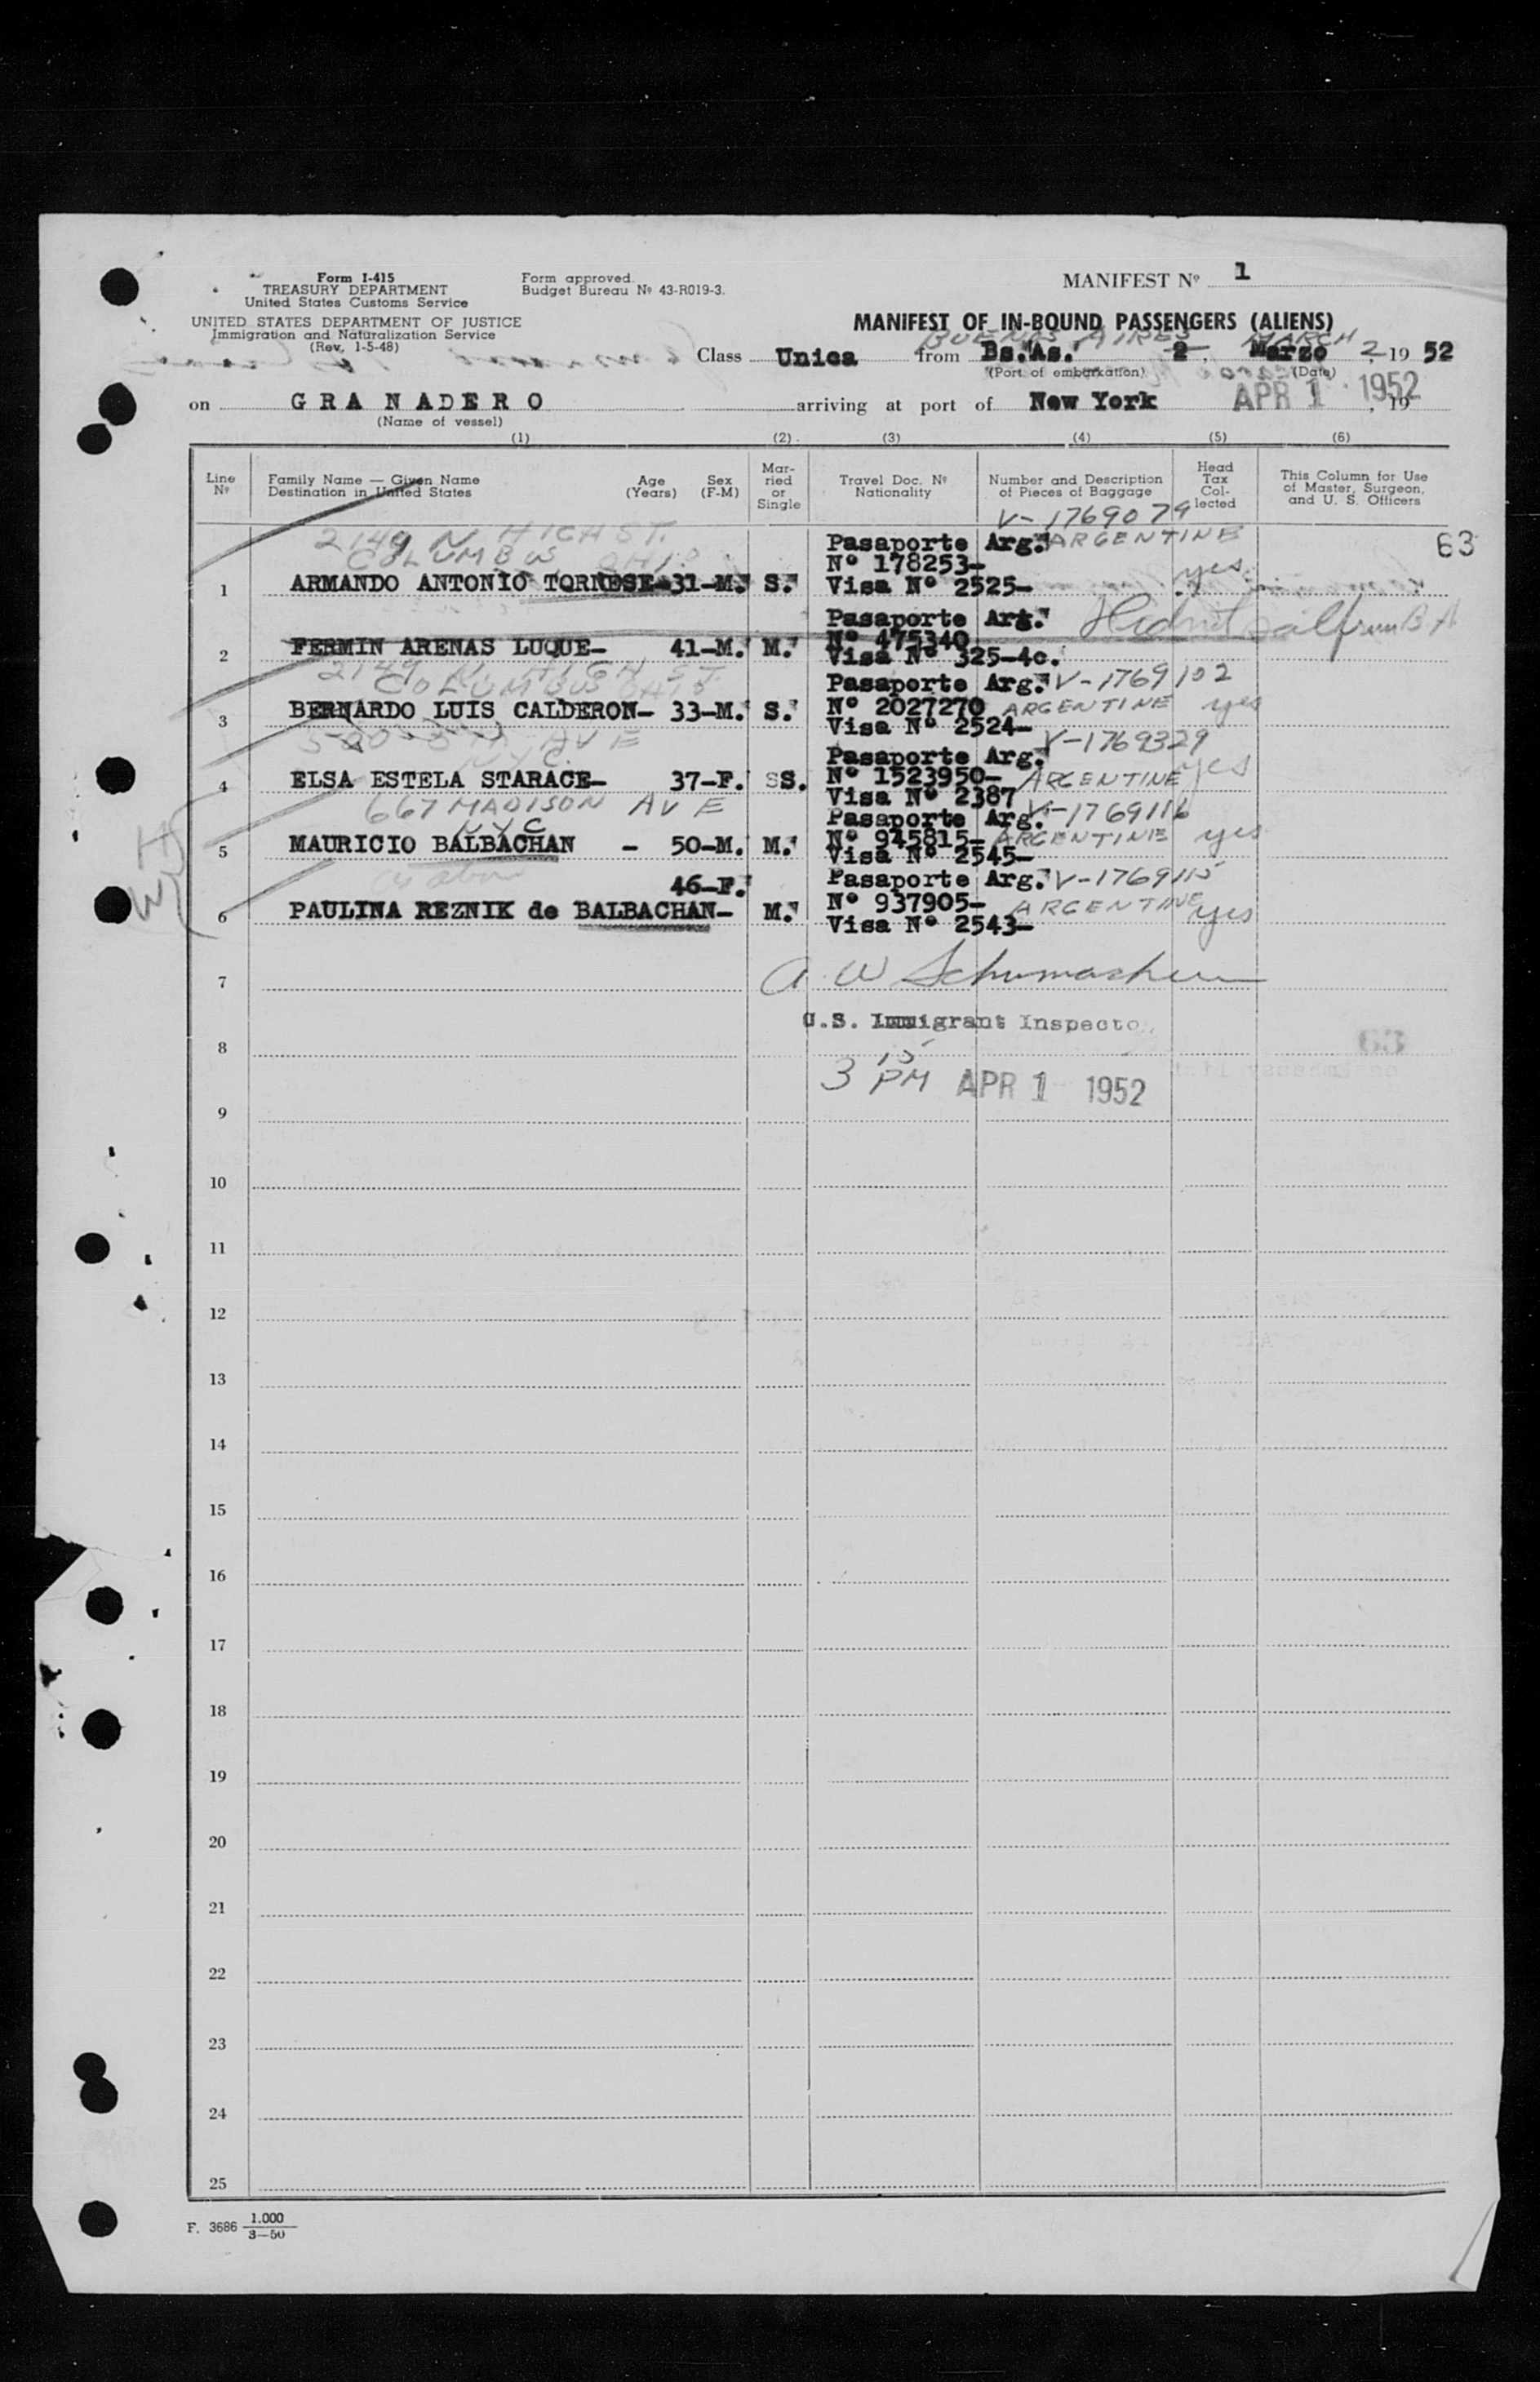 Form I-415
TREASURY DEPARTMENT
United States Customs Service
UNITED STATES DEPARTMENT OF JUSTICE
Immigration and Naturalization Service
(Rev. 1-5-48)
Form approved.
Budget Bureau Nº 43-R019-3.
MANIFEST Nº 1
MANIFEST OF IN-BOUND PASSENGERS (ALIENS)
BUENAS AIRES MARCH
Class Unica from Bs.As. 2, Marzo 2 19 52
(Port of embarkation) (Date)
on GRANADERO arriving at port of New York APR 1 1952, 19
(Name of vessel)
(1) (2) (3) (4) (5) (6)
Line Nº
Family Name — Given Name
Destination in United States
Age (Years)
Sex (F-M)
Mar-ried or Single
Travel Doc. Nº
Nationality
Number and Description
of Pieces of Baggage
Head Tax Col-lected
This Column for Use
of Master, Surgeon,
and U. S. Officers
V-1769079
2149 N HIGH ST.
COLUMBUS OHIO
Pasaporte Arg. ARGENTINE 63
Nº 178253- yes
1 ARMANDO ANTONIO TORRESE-31-M. S. Visa Nº 2525-
Pasaporte Art. from BA
Nº 475340
2 FERMIN ARENAS LUQUE- 41-M. M. Visa Nº 325-4c.
2149 N. HIGH ST.
COLUMBUS OHIO
Pasaporte Arg. V-1769102
3 BERNARDO LUIS CALDERON- 33-M. S. Nº 2027270 ARGENTINE yes
Visa Nº 2524-
500-5TH AVE
N.Y.C.
V-1769329
Pasaporte Arg. yes
4 ELSA ESTELA STARACE- 37-F. SS. Nº 1523950- ARGENTINE
Visa Nº 2387
667 MADISON AVE
NYC
Pasaporte Arg. V-1769116
5 MAURICIO BALBACHAN - 50-M. M. Nº 945815- ARGENTINE yes
Visa Nº 2545-
as above
46-F. Pasaporte Arg. V-1769115
6 PAULINA REZNIK de BALBACHAN- M. Nº 937905- ARGENTINE yes
Visa Nº 2543-
7 A W Schumacher
U.S. Immigrant Inspecto
8
3 15 PM APR 1 1952
9
10
11
12
13
14
15
16
17
18
19
20
21
22
23
24
25
F. 3686 1.000
3-50